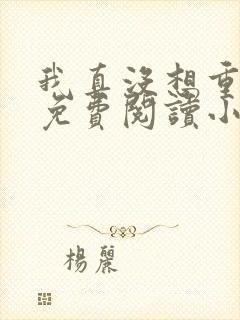 我真没想重
免費閱讀小
楊麗